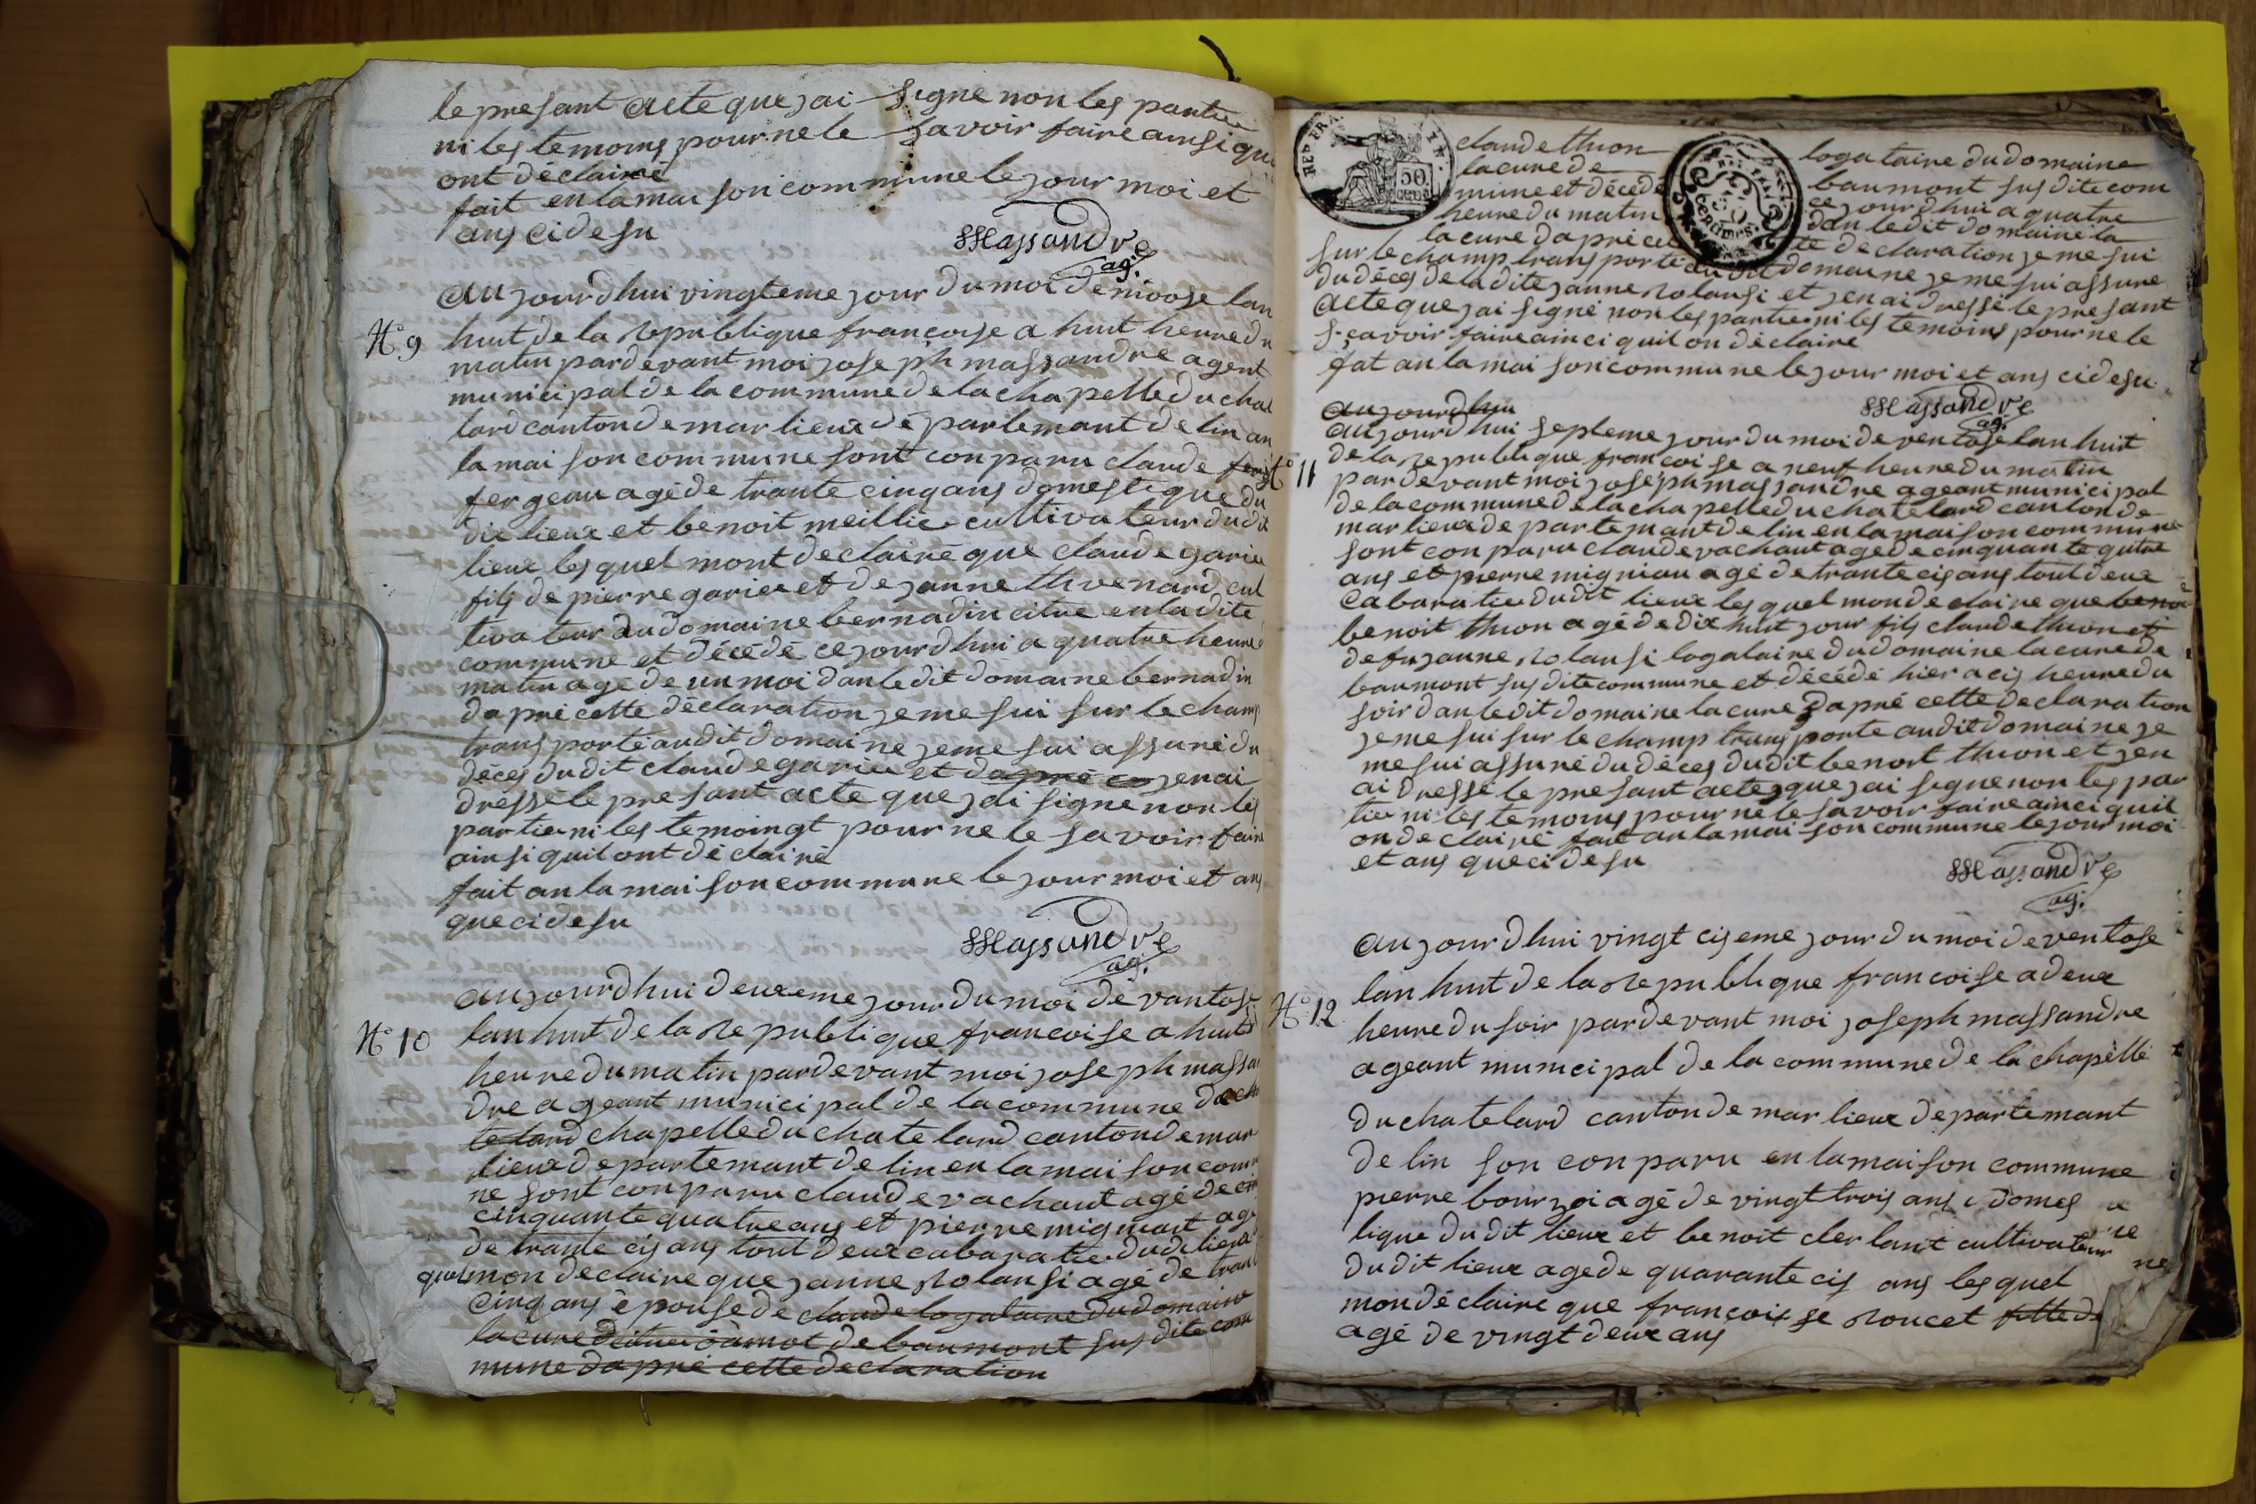 le presant acte que jai signe non les partie
ni les temoins pour ne le savoir faire ainsi qui
ont déclairé
fait en la maison commune le jour moi et
ans ci desu
Massandre
ag.
aujourdhui vingteme jour du moi de nivose lan
N° 9 huit de la republique francoise a huit heure du
matin pardevant moi joseph massandre agent
municipal de la commune de la chapelle du cha
lard canton de marlieux départemant de lin an
la maison commune sont conparu claude
fergeau agé de trante cinq ans domestique du
dit lieux et benoit meillie cultivateur dudit
lieux lesquel mont declairé que claude garie
fils de pierre garier et de janne thvenard cul
tivateur du domaine bernadin citue en la dite
commune et décédé ce jourdhui a quatre heure
matin agé de un moi dan le dit domaine bernadin
dapré cette déclaration je me sui sur le champ
transporté au dit domaine je me sui assuré du
déces du dit claude garier et dapré ce jen ai
dressé le presant acte que jai signe non les
partie ni les temoingt pour ne le savoir faire
ainsi quil ont déclairé
fait an la maison commune le jour moi et ans
que ci desu
Massandre
ag.
aujourdhui deuxeme jour du moi de vantose
N° 10 lan huit de la republique francoise a huit
heure du matin pardevant moi joseph massan
dre ageant municipal de la commune de cha
telard chapelle du chatelard canton de mar
lieux departemant de lin en la maison commu
ne sont conparu claude vachaut agé de
cinquante quatre ans et pierre migniaut agé
de trante cis ans tout deux cabaratier du dit lieux
quel mon declaire que janne rolansi agé de trante
cinq ans épouse de claude logataire du domaine
la cure citue de baumont sus dite com
mune dapré cette declaration
claude thion logataire du domaine
la cure de baumont sus dite com
mune et décédé ce jourdhui a quatre
heure du matin dan le dit domaine la
la cure dapré cette déclaration je me sui
sur le champ transporté au dit domaine je me sui assuré
du déces de la dite janne rolansi et jen ai dressé le presant
acte que jai signé non les partie ni les temoins pour ne le
scavoir faire ainci quil on déclaire
fat an la maison commune le jour moi et ans ci desu
Massandre
ag.
aujourdhui
aujourdhui septeme jour du moi de ventose lan huit
N° 11 de la republique francoise a neuf heure du matin
pardevant moi joseph massandre ageant municipal
de la commune de la chapelle du chatelard canton de
marlieux departemant de lin en la maison commune
sont conparu claude vachaut agé de cinquante qutre
ans et pierre migniau agé de trante cis ans tout deux
cabaratier du dit lieux lesquel mon declaire que benoi
benoit thion agé de dix huit jour fils claude thion et
de fu janne rolansi logataire du domaine la cure de
baumont sus dite commune et décédé hier a cis heure du
soir dan le dit domaine la cure dapré cette declaration
je me sui sur le champ transporté au dit domaine je
me sui assuré du déces du dit benoit thion et jen
ai dressé le presant acte que jai signe non les par
tie ni les temoins pour ne le savoir faire ainci quil
on declairé fait an la maison commune le jour moi
et ans que ci desu
Massandre
ag.
aujourdhui vingt ciseme jour du moi de ventose
lan huit de la republique francoise a deux
N° 12 heure du soir pardevant moi joseph massandre
ageant municipal de la commune de la chapelle
du chatelard canton de marlieux departemant
de lin son conparu en la maison commune
pierre bourjoi agé de vingt trois ans domes
tique du dit lieux et benoit clerlant cultivateur
du dit lieux agé de quarante cis ans lesquel
mon déclaire que francoise roucet fille de
agé de vingt deux ans